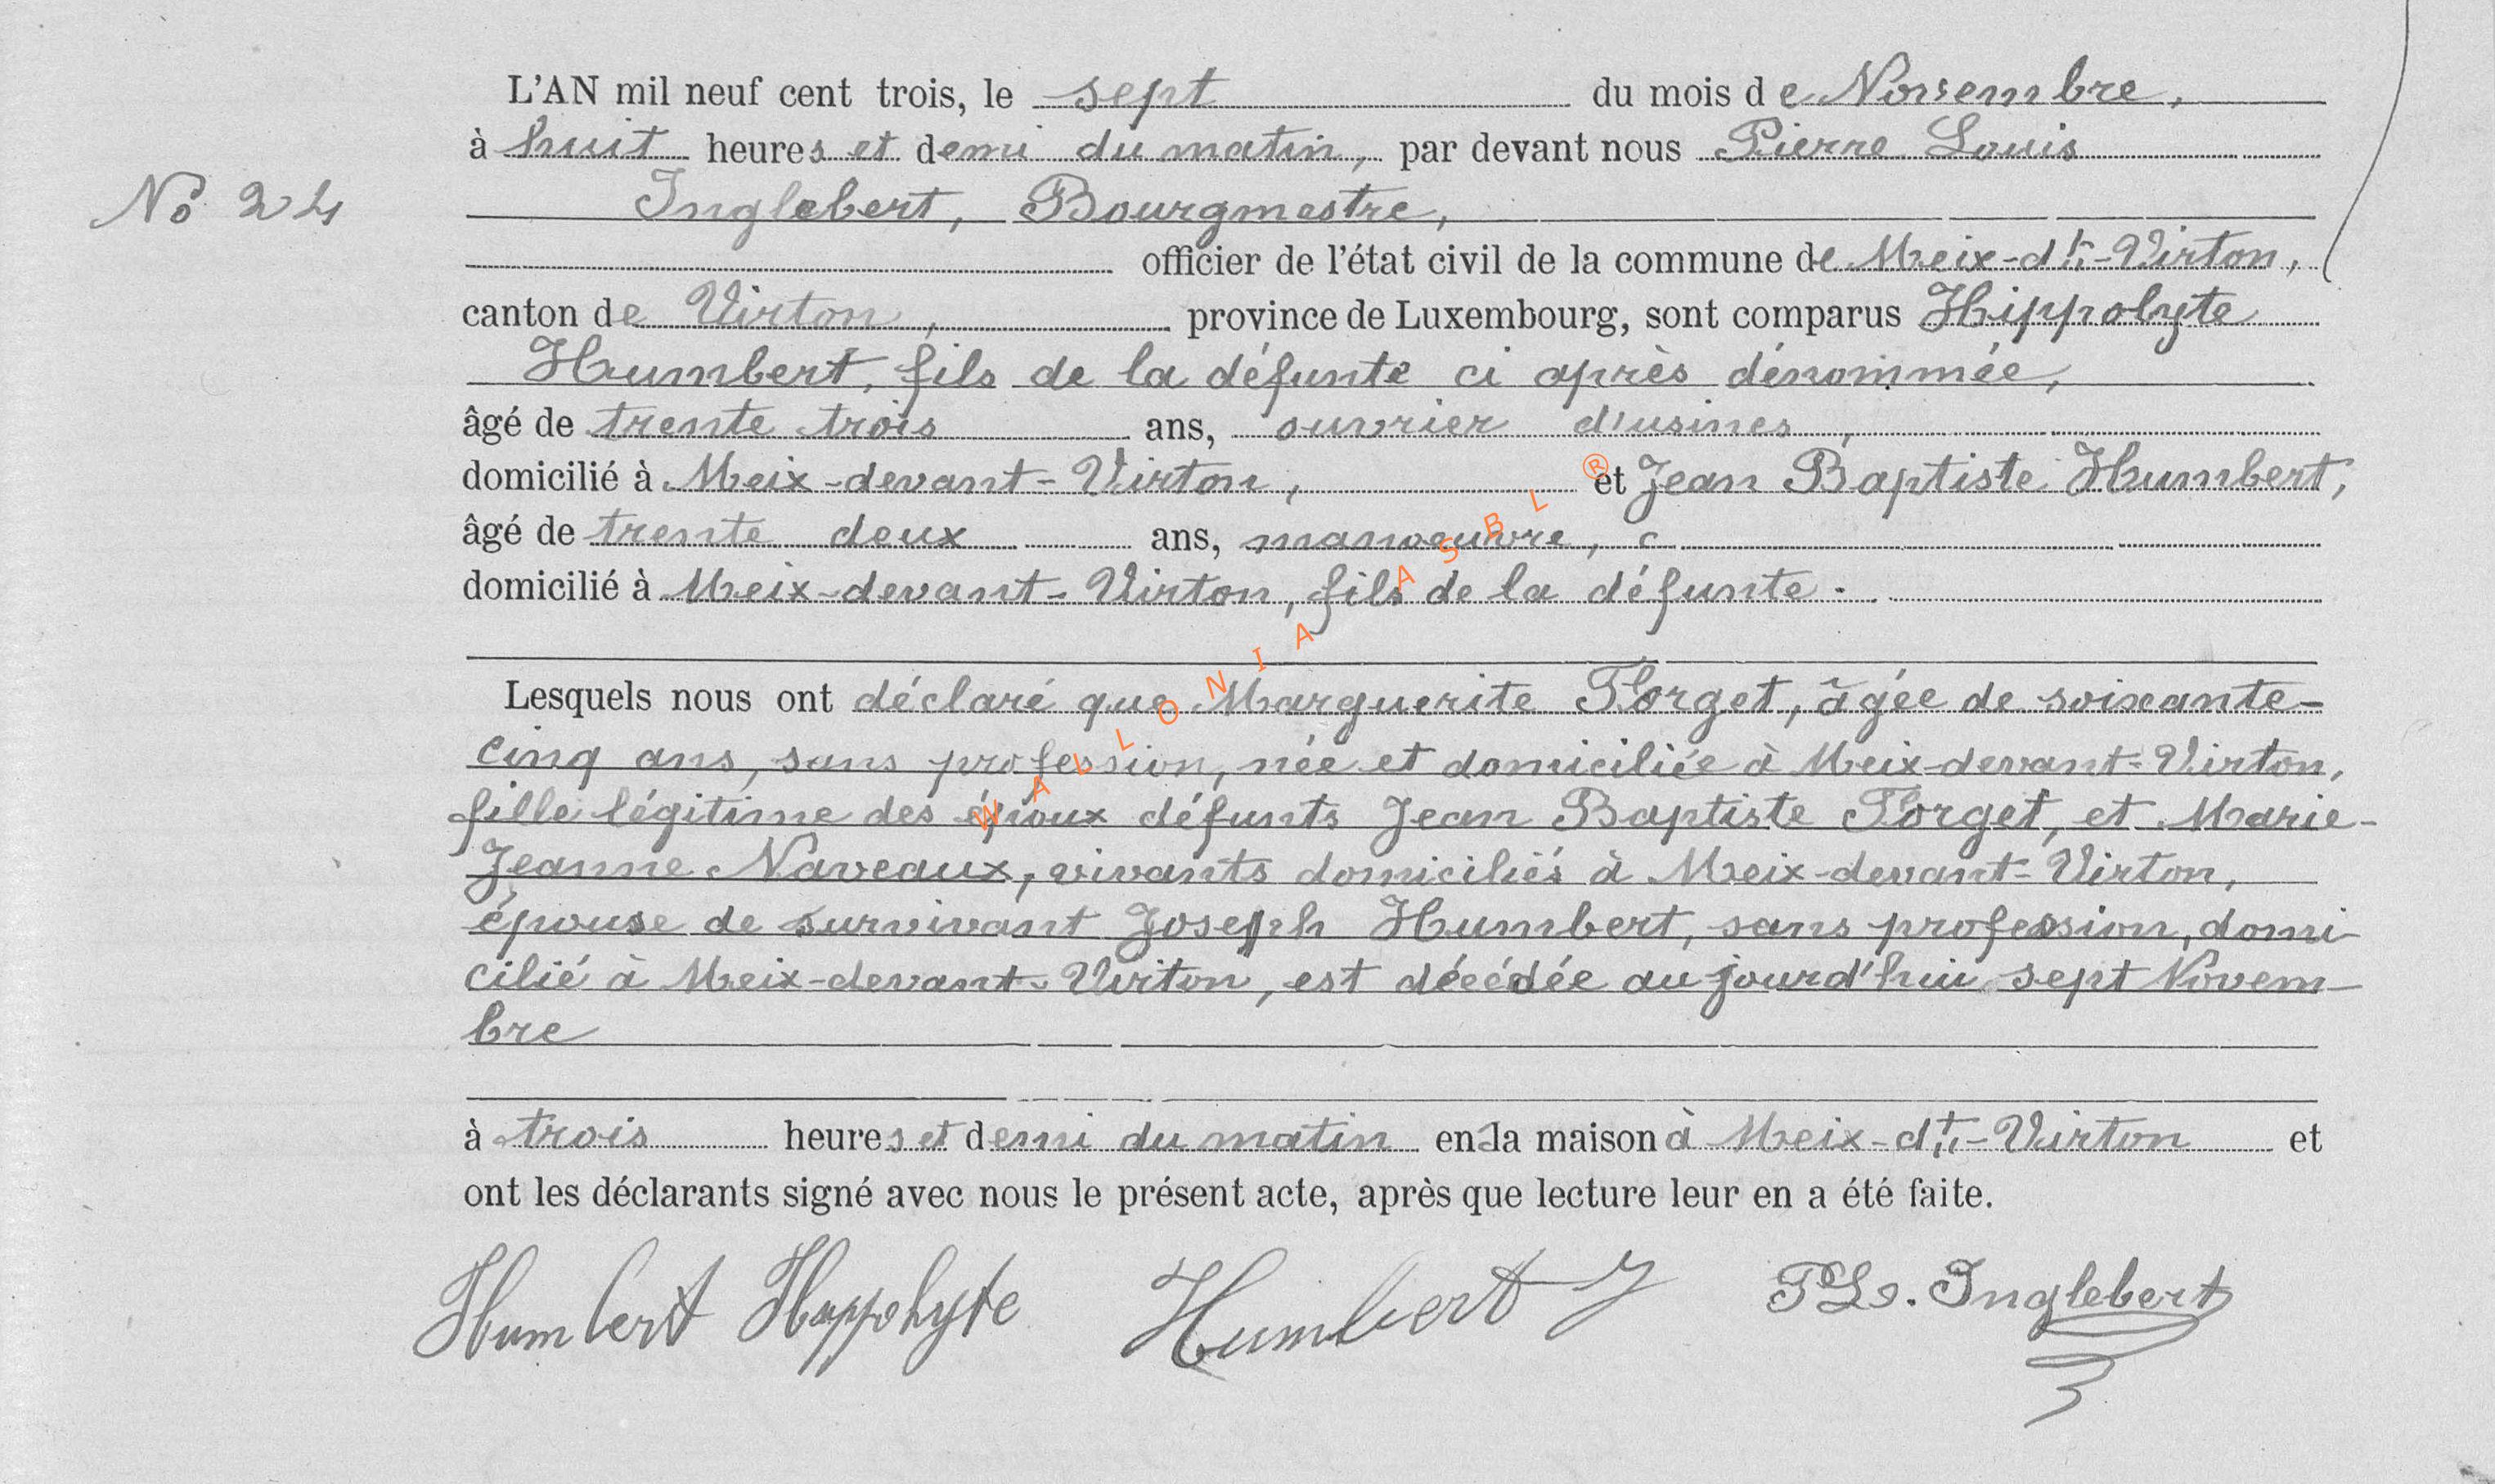 L'AN mil neuf cent trois, le sept du mois de Novembre,
à huit heures et demi du matin, par devant nous Pierre Louis
No 24
Inglebert, Bourgmestre,
officier de l'état civil de la commune de Meix-dt-Virton,
canton de Virton, province de Luxembourg, sont comparus Hippolyte
Humbert, fils de la défunte ci après dénommée,
âgé de trente trois ans, ouvrier d'usines,
domicilié à Meix-devant-Virton, et Jean Baptiste Humbert,
âgé de trente deux ans, manoeuvre,
domicilié à Meix-devant-Virton, fils de la défunte.
Lesquels nous ont déclaré que Marguerite Forget, âgée de soixante-
cinq ans, sans profession, née et domiciliée à Meix-devant-Virton,
fille légitime des époux défunts Jean Baptiste Forget, et Marie-
Jeanne Naveaux, vivants domiciliés à Meix-devant-Virton,
épouse de survivant Joseph Humbert, sans profession, domi
cilié à Meix-devant-Virton, est décédée aujourd'hui sept Novem-
bre
à trois heures et demi du matin en la maison à Meix-dt-Virton et
ont les déclarants signé avec nous le présent acte, après que lecture leur en a été faite.
Humbert Hyppolyte Humbert J PLs. Inglebert
WALLONIA ASBL ®